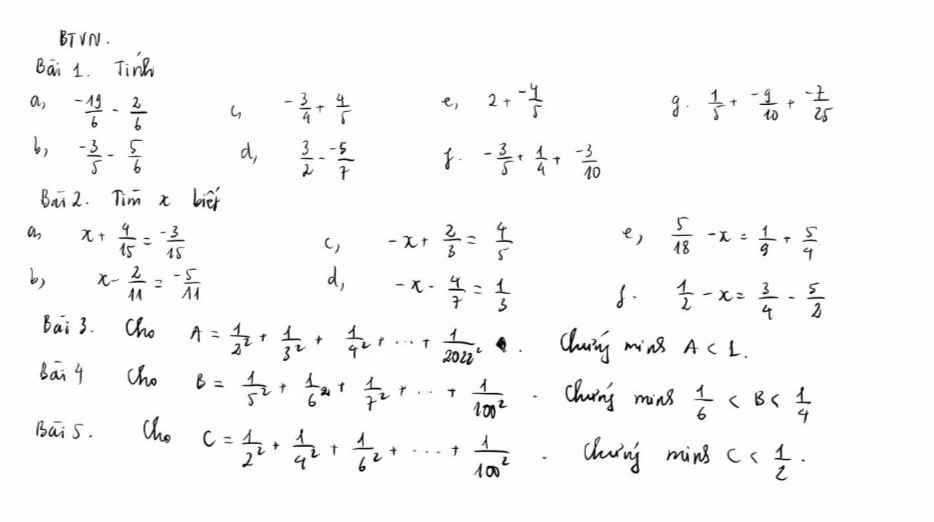 BTVN.
Bài 1. Tính
a, -19/6 - 2/6    c, -3/4 + 4/5    e, 2 + -4/5    g. 1/5 + -9/10 + -7/25
b, -3/5 - 5/6    d, 3/2 - -5/7    f. -3/5 + 1/4 + -3/10
Bài 2. Tìm x biết
a, x + 4/15 = -3/15    c, -x + 2/3 = 4/5    e, 5/18 - x = 1/9 + 5/4
b, x - 2/11 = -5/11    d, -x - 4/7 = 1/3    f. 1/2 - x = 3/4 - 5/2
Bài 3. Cho A = 1/2² + 1/3² + 1/4² + ... + 1/2022². Chứng minh A < 1.
Bài 4 Cho B = 1/5² + 1/6² + 1/7² + ... + 1/100². Chứng minh 1/6 < B < 1/4
Bài 5. Cho C = 1/2² + 1/4² + 1/6² + ... + 1/100². Chứng minh C < 1/2.